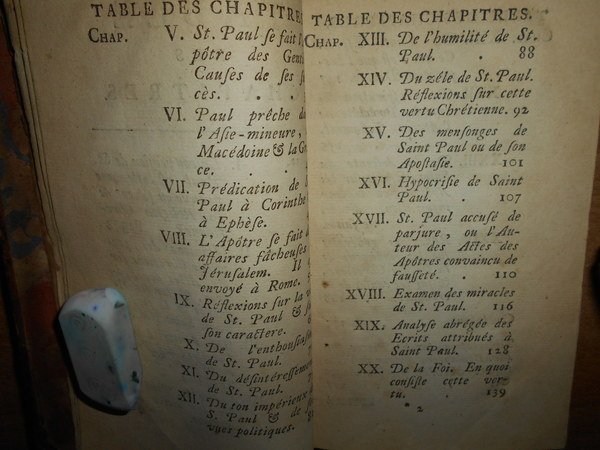 TABLE DES CHAPITRES
CHAP. V. St. Paul ſe fait
pôtre des
Cauſes de ſes
cès. . .
VI. Paul prêche
l'Aſie-mineure,
Macédoine & la
ce.
VII. Prédication de
Paul à Corinthe
à Ephèſe.
VIII. L'Apôtre ſe fait
affaires fâcheuſes
Jéruſalem. Il
envoyé à Rome.
IX. Réflexions ſur la
de St. Paul &
ſon caractere.
X. De l'enthouſiaſ
de St. Paul.
XI. Du déſintéreſſement
de St. Paul.
XII. Du ton impérieux
S. Paul & de ſe
vues politiques.
TABLE DES CHAPITRES.
CHAP. XIII. De l'humilité de St.
Paul. . 88
XIV. Du zéle de St. Paul.
Réflexions ſur cette
vertu Chrétienne. 92
XV. Des menſonges de
Saint Paul ou de ſon
Apoſtaſie. 101
XVI. Hypocriſie de Saint
Paul. . 107
XVII. St. Paul accuſé de
parjure, ou l'Au-
teur des Actes des
Apôtres convaincu de
fauſſeté. . 110
XVIII. Examen des miracles
de St. Paul. 116
XIX. Analyſe abrégée des
Ecrits attribués à
Saint Paul. 128
XX. De la Foi. En quoi
conſiſte cette ver-
tu. . 139
* 2